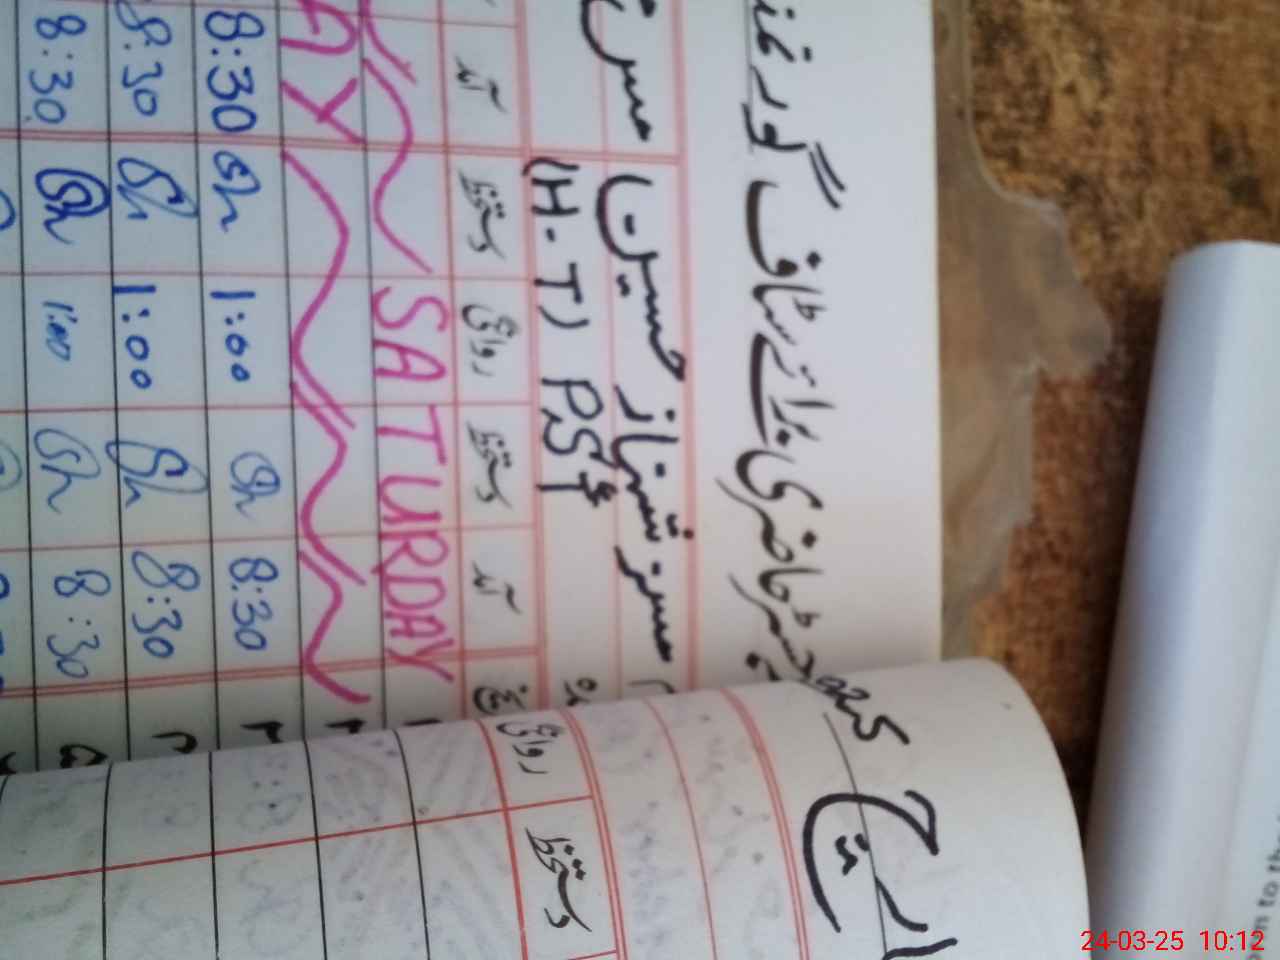 رجسٹر حاضری برائے سٹاف گورنمنـ
مارچ
مسز شہناز حسین
(H.T) PST
آمد دستخط روانگی دستخط آمد
SATURDAY
AY
8:30 1:00 8:30
8:30 1:00 8:30
8:30 1:00 8:30
روانگی دستخط
on to th
24-03-25 10:12